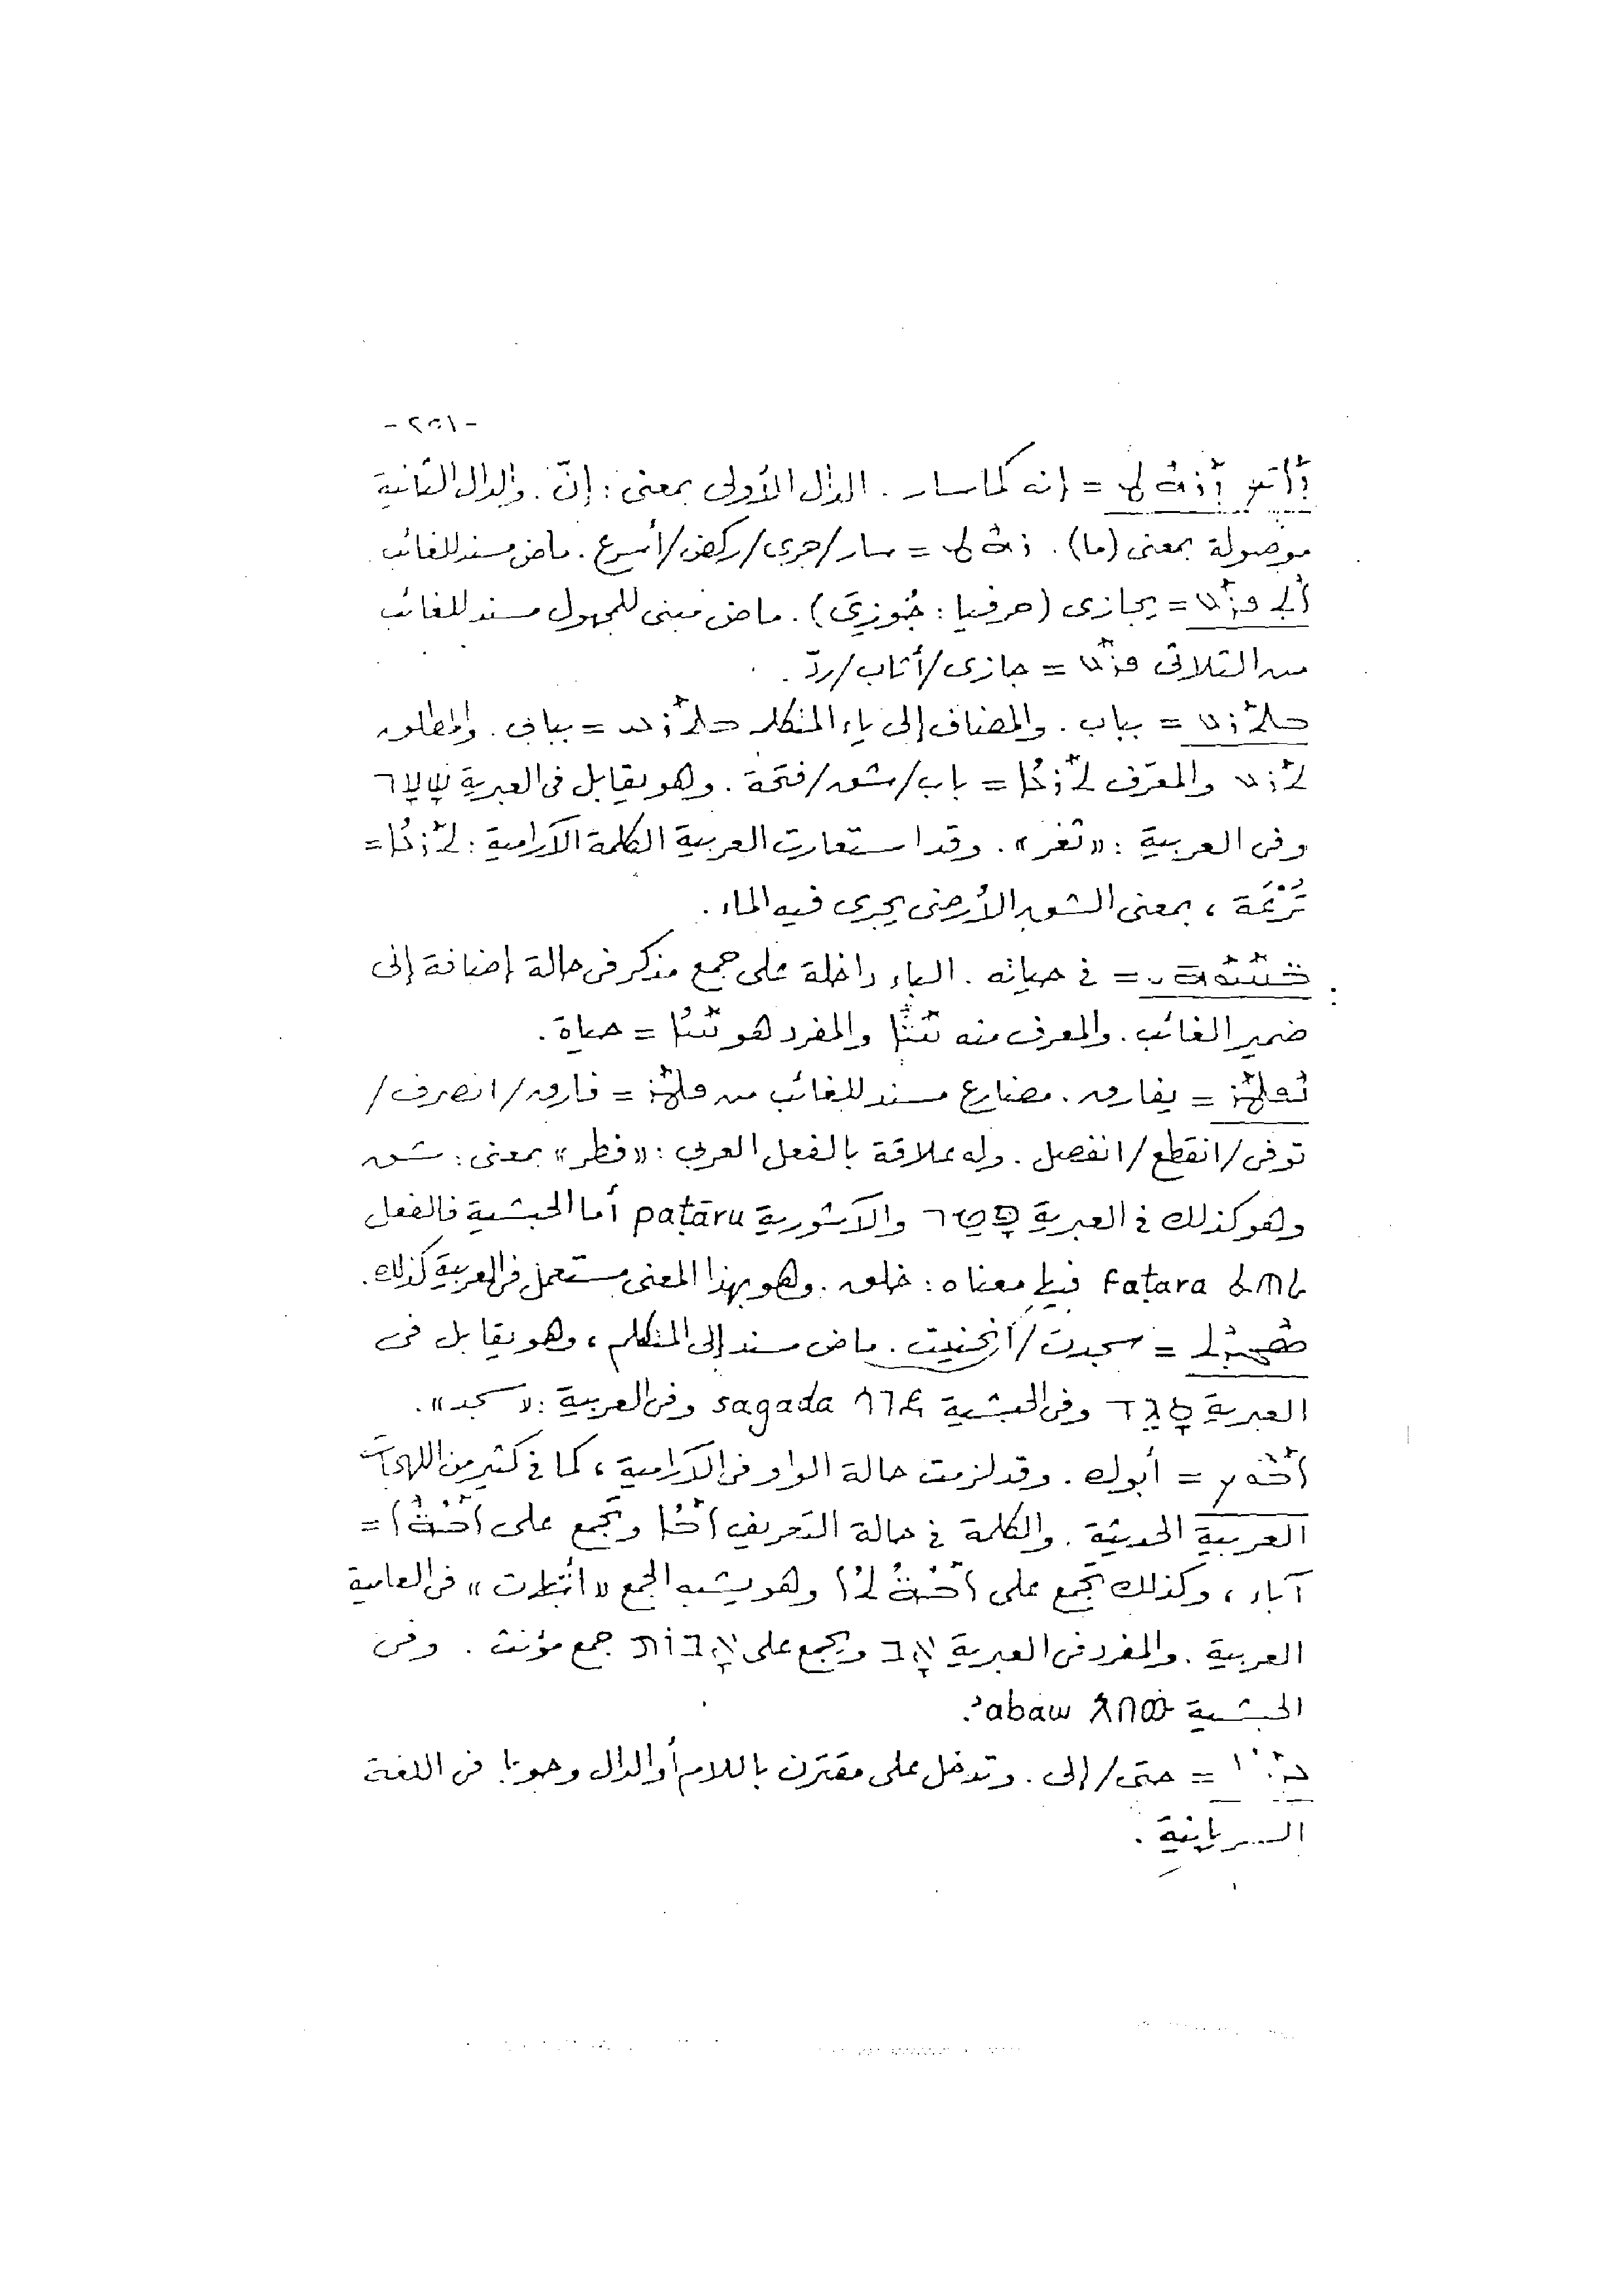 -٢٥١-
ܕܐܝܟ ܕܪܗܛ = إنه كما سار . الدال الأولى بمعنى : إنّ . والدال الثانية
موصولة بمعنى (ما) . ܪܗܛ = سار/جرى/ركض/أسرع . ماض مسند للغائب
ܐܬܦܪܥ = يجازى (حرفيا : جُوزِيَ) . ماض مبنى للمجهول مسند للغائب
من الثلاثى ܦܪܥ = جازى/أثاب/ردّ .
ܒܬܪܥ = بباب . والمضاف إلى ياء المتكلم ܒܬܪܥܝ = ببابى . والمطلق
ܬܪܥ والمعرّف ܬܪܥܐ = باب/شق/فتحة . وهو يقابل فى العبرية שַׁעַר
وفى العربية : «ثغر» . وقد استعارت العربية الكلمة الآرامية : ܬܪܥܐ =
تُرْعَة ، بمعنى الشق الأرضى يجرى فيه الماء .
ܒܚܝܘܗܝ = فى حياته . الباء داخلة على جمع مذكر فى حالة إضافة إلى
ضمير الغائب . والمعرف منه ܚܝܐ والمفرد هو ܚܝܐ = حياة .
ܢܦܛܪ = يفارق . مضارع مسند للغائب من ܦܛܪ = فارق/انصرف/
توفى/انقطع/انفصل . وله علاقة بالفعل العربى : «فطر» بمعنى : شق
وهو كذلك فى العبرية פָּטַר والآشورية paṭāru أما الحبشية فالفعل
ፈጠረ Faṭara فيها معناه : خلق . وهو بهذا المعنى مستعمل فى العربية كذلك .
ܣܓܕܬ = سجدت/انحنيت . ماض مسند إلى المتكلم ، وهو يقابل فى
العبرية סָגַד وفى الحبشية ሰገደ sagada وفى العربية : «سجد» .
ܐܒܘܟ = أبوك . وقد لزمت حالة الواو فى الآرامية ، كما فى كثير من اللهجات
العربية الحديثة . والكلمة فى حالة التعريف ܐܒܐ وتجمع على ܐܒܗܐ =
آباء ، وكذلك تجمع على ܐܒܗܬܐ وهو يشبه الجمع «أبّهات» فى العامية
العربية . والمفرد فى العبرية אָב ويجمع على אָבוֹת جمع مؤنث . وفى
الحبشية አበው ʾabaw .
ܥܕܡܐ = حتى/إلى . وتدخل على مقترن باللام أو الدال وجوبا فى اللغة
السريانية .